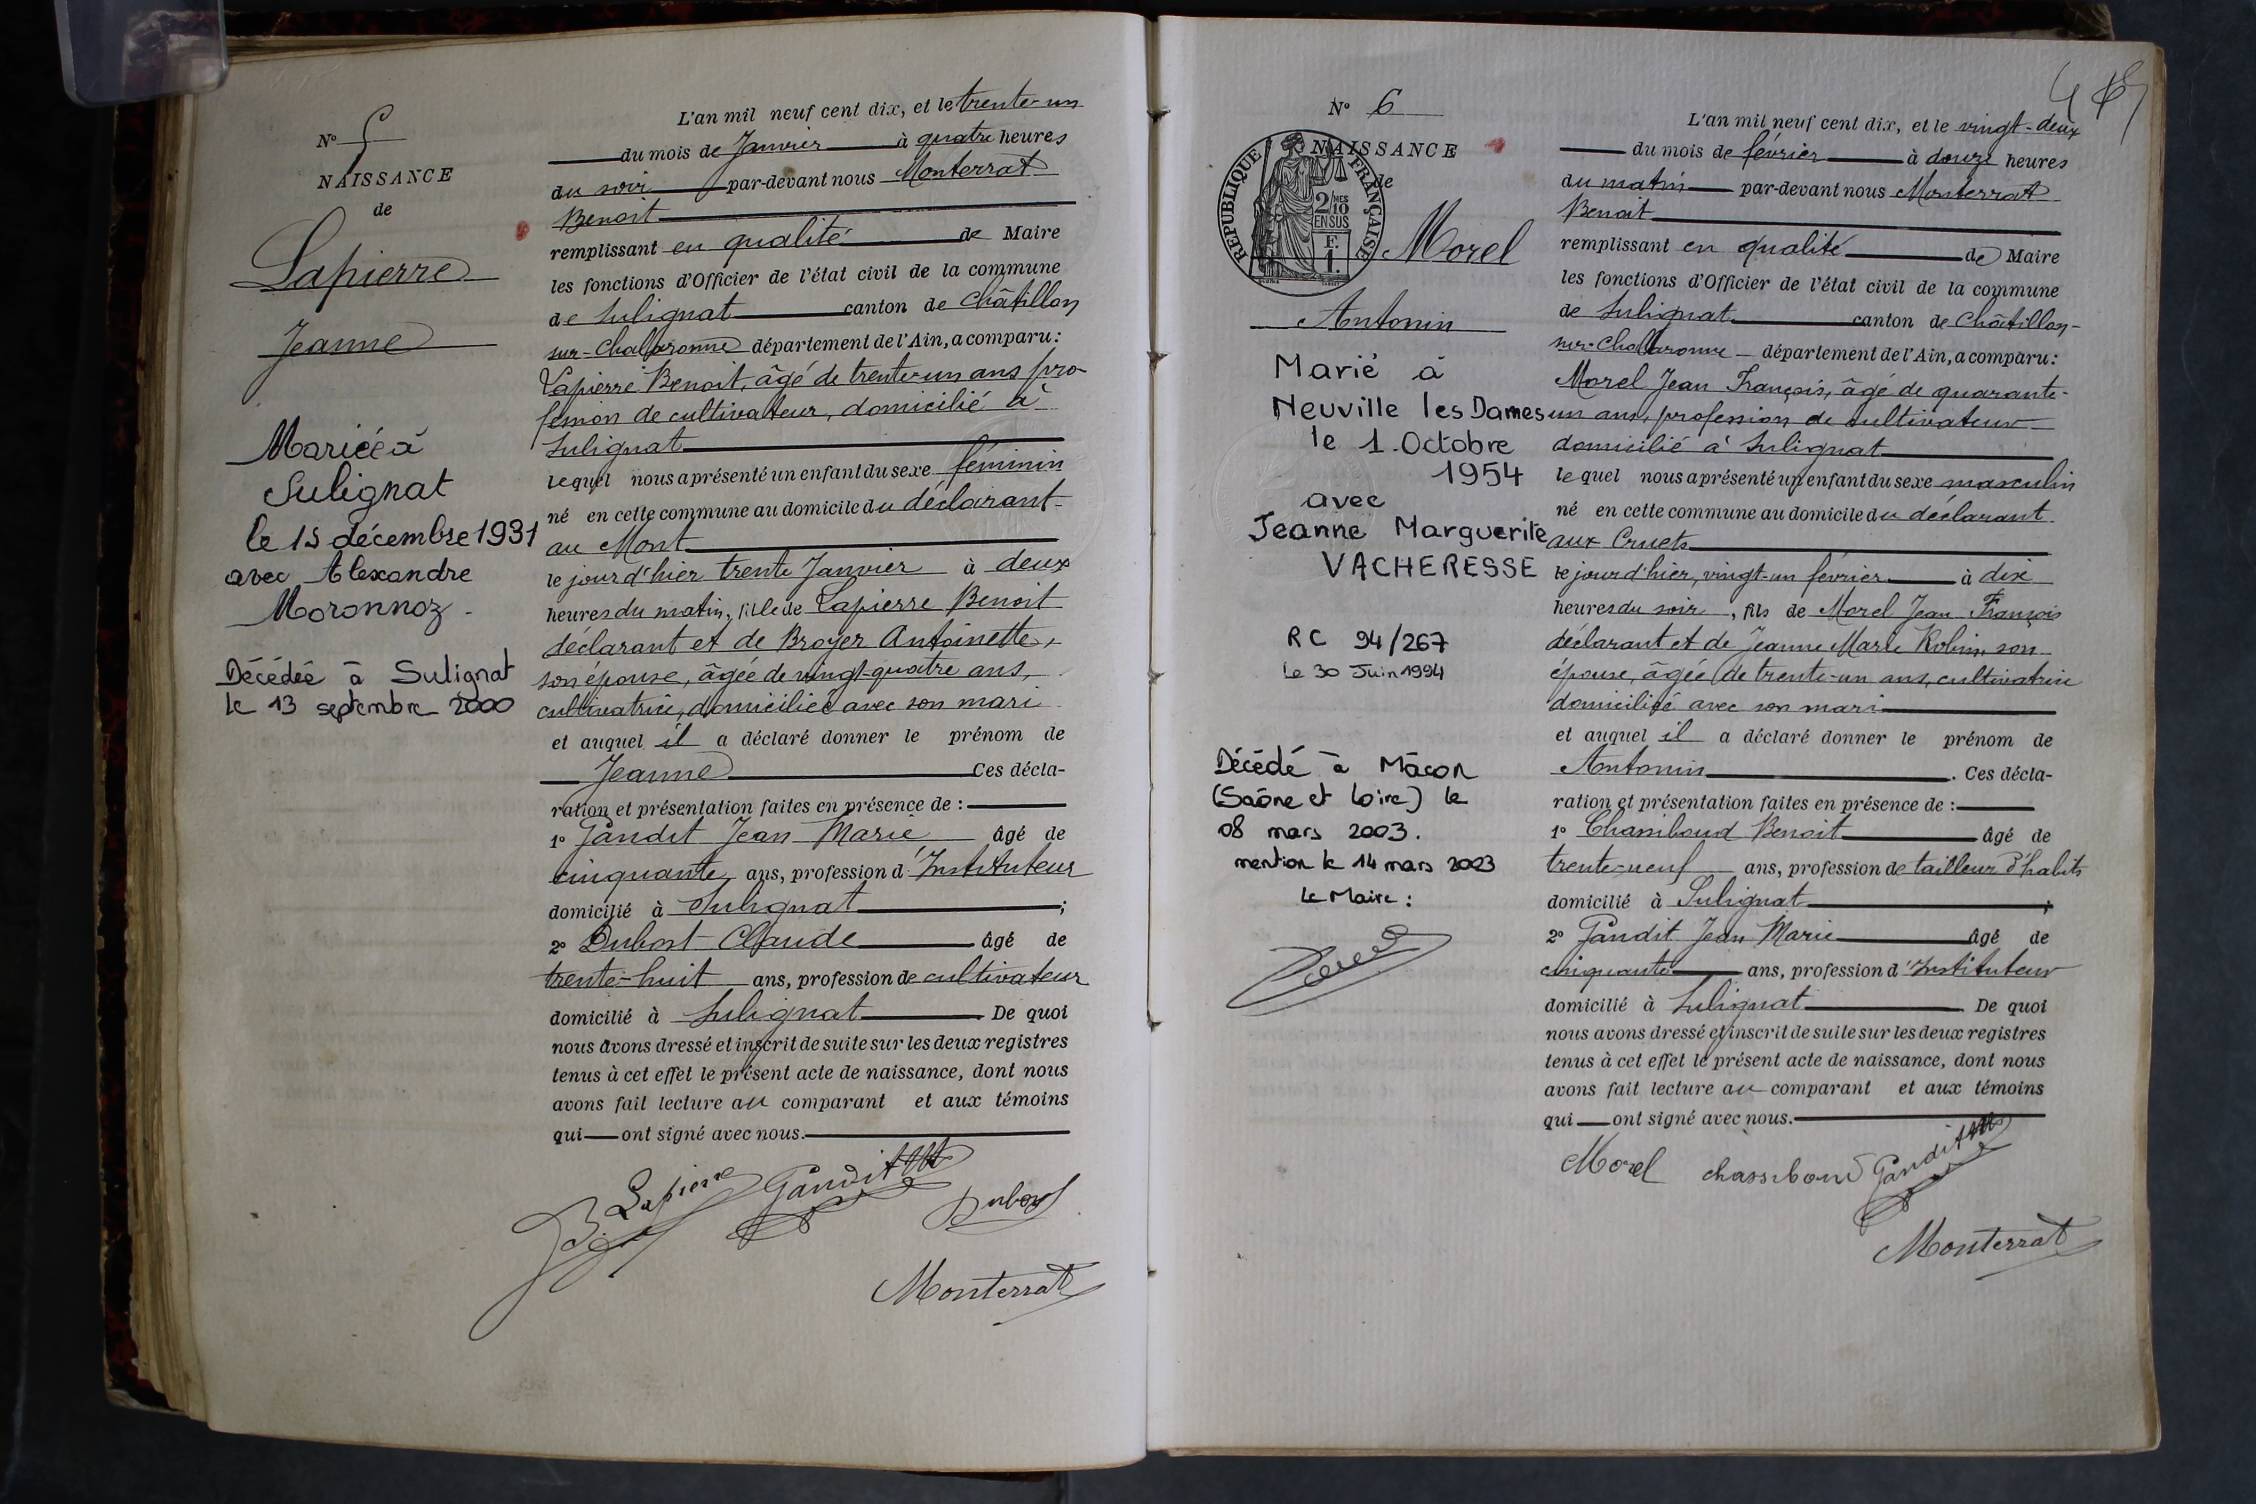 N° 5
NAISSANCE
de
Lapierre
Jeanne
Mariée à
Sulignat
le 15 décembre 1931
avec Alexandre
Moronnoz.
Décédée à Sulignat
le 13 septembre 2000
L'an mil neuf cent dix, et le trente-un
du mois de Janvier à quatre heures
du soir par-devant nous Monterrat
Benoit
remplissant en qualité de Maire
les fonctions d'Officier de l'état civil de la commune
de Sulignat canton de Châtillon
sur-Chalaronne département de l'Ain, a comparu:
Lapierre Benoit, âgé de trente-un ans pro
fession de cultivateur, domicilié à
Sulignat
lequel nous a présenté un enfant du sexe féminin
né en cette commune au domicile du déclarant
au Mont
le jour d'hier trente Janvier à deux
heures du matin, fille de Lapierre Benoit
déclarant et de Broyer Antoinette,
son épouse, âgée de vingt-quatre ans,
cultivatrice, domiciliée avec son mari
et auquel il a déclaré donner le prénom de
Jeanne Ces décla-
ration et présentation faites en présence de :
1° Gandit Jean Marie âgé de
cinquante ans, profession d'Instituteur
domicilié à Sulignat ;
2° Dubost Claude âgé de
trente-huit ans, profession de cultivateur
domicilié à Sulignat De quoi
nous avons dressé et inscrit de suite sur les deux registres
tenus à cet effet le présent acte de naissance, dont nous
avons fait lecture au comparant et aux témoins
qui ont signé avec nous.
B. Lapierre Gandit Dubost
Monterrat
N° 6
NAISSANCE
de
RÉPUBLIQUE FRANÇAISE
2/10 MES
EN SUS
F.
1.
Morel
Antonin
Marié à
Neuville les Dames
le 1. Octobre
1954
avec
Jeanne Marguerite
VACHERESSE
RC 94/267
le 30 Juin 1994
Décédé à Mâcon
(Saône et Loire) le
08 mars 2003.
mention le 14 mars 2003
Le Maire :
L'an mil neuf cent dix, et le vingt-deux
du mois de février à douze heures
du matin par-devant nous Monterrat
Benoit
remplissant en qualité de Maire
les fonctions d'Officier de l'état civil de la commune
de Sulignat canton de Châtillon-
sur-Chalaronne département de l'Ain, a comparu:
Morel Jean François, âgé de quarante-
un ans, profession de cultivateur
domicilié à Sulignat
lequel nous a présenté un enfant du sexe masculin
né en cette commune au domicile du déclarant
aux Cruets
le jour d'hier, vingt-un février à dix
heures du soir, fils de Morel Jean François
déclarant et de Jeanne Marie Robin, son
épouse, âgée de trente-un ans, cultivatrice
domiciliée avec son mari
et auquel il a déclaré donner le prénom de
Antonin. Ces décla-
ration et présentation faites en présence de :
1° Chassiboud Benoit âgé de
trente-neuf ans, profession de tailleur d'habits
domicilié à Sulignat ;
2° Gandit Jean Marie âgé de
cinquante ans, profession d'Instituteur
domicilié à Sulignat De quoi
nous avons dressé et inscrit de suite sur les deux registres
tenus à cet effet le présent acte de naissance, dont nous
avons fait lecture au comparant et aux témoins
qui ont signé avec nous.
Morel chassiboud Gandit
Monterrat